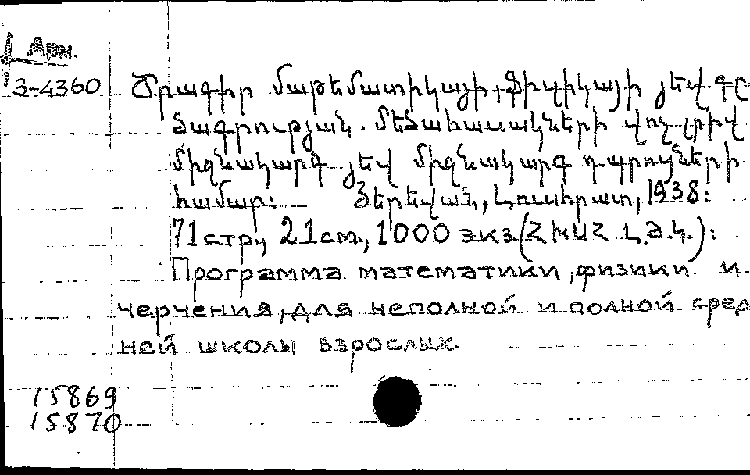 Арм.
3-4360 Ծրագիր մաթեմատիկայի, ֆիզիկայի յեվ գը
ծագրության. մեծահասակների վոչ լրիվ
միջնակարգ յեվ միջնակարգ դպրոցների
համար: Յերեվան, Լուսհրատ, 1938:
71 стр, 21 см, 1000 экз (ՀԽՍՀ Լ.Ժ.Կ.):
Программа математики, физики и
черчения, для неполной и полной сред
ней школы взрослых.
15869
15870